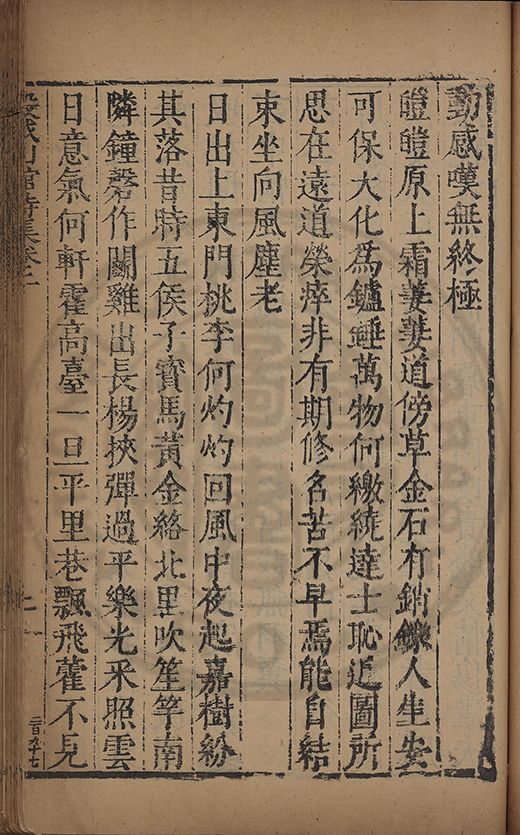 動感嘆無終極
皚皚原上霜萋萋道傍草金石有銷鑠人生安
可保大化爲鑪錘萬物何繳繞達士恥近圖所
思在遠道榮瘁非有期修名苦不早焉能自結
束坐向風塵老
日出上東門桃李何灼灼回風中夜起嘉樹紛
其落昔時五侯子寶馬黃金絡北里吹笙竽南
隣鐘磬作鬬雞出長楊挾彈過平樂光采照雲
日意氣何軒霍高臺一旦平里巷飄飛藿不見
山館詩集卷之一
二百九十七